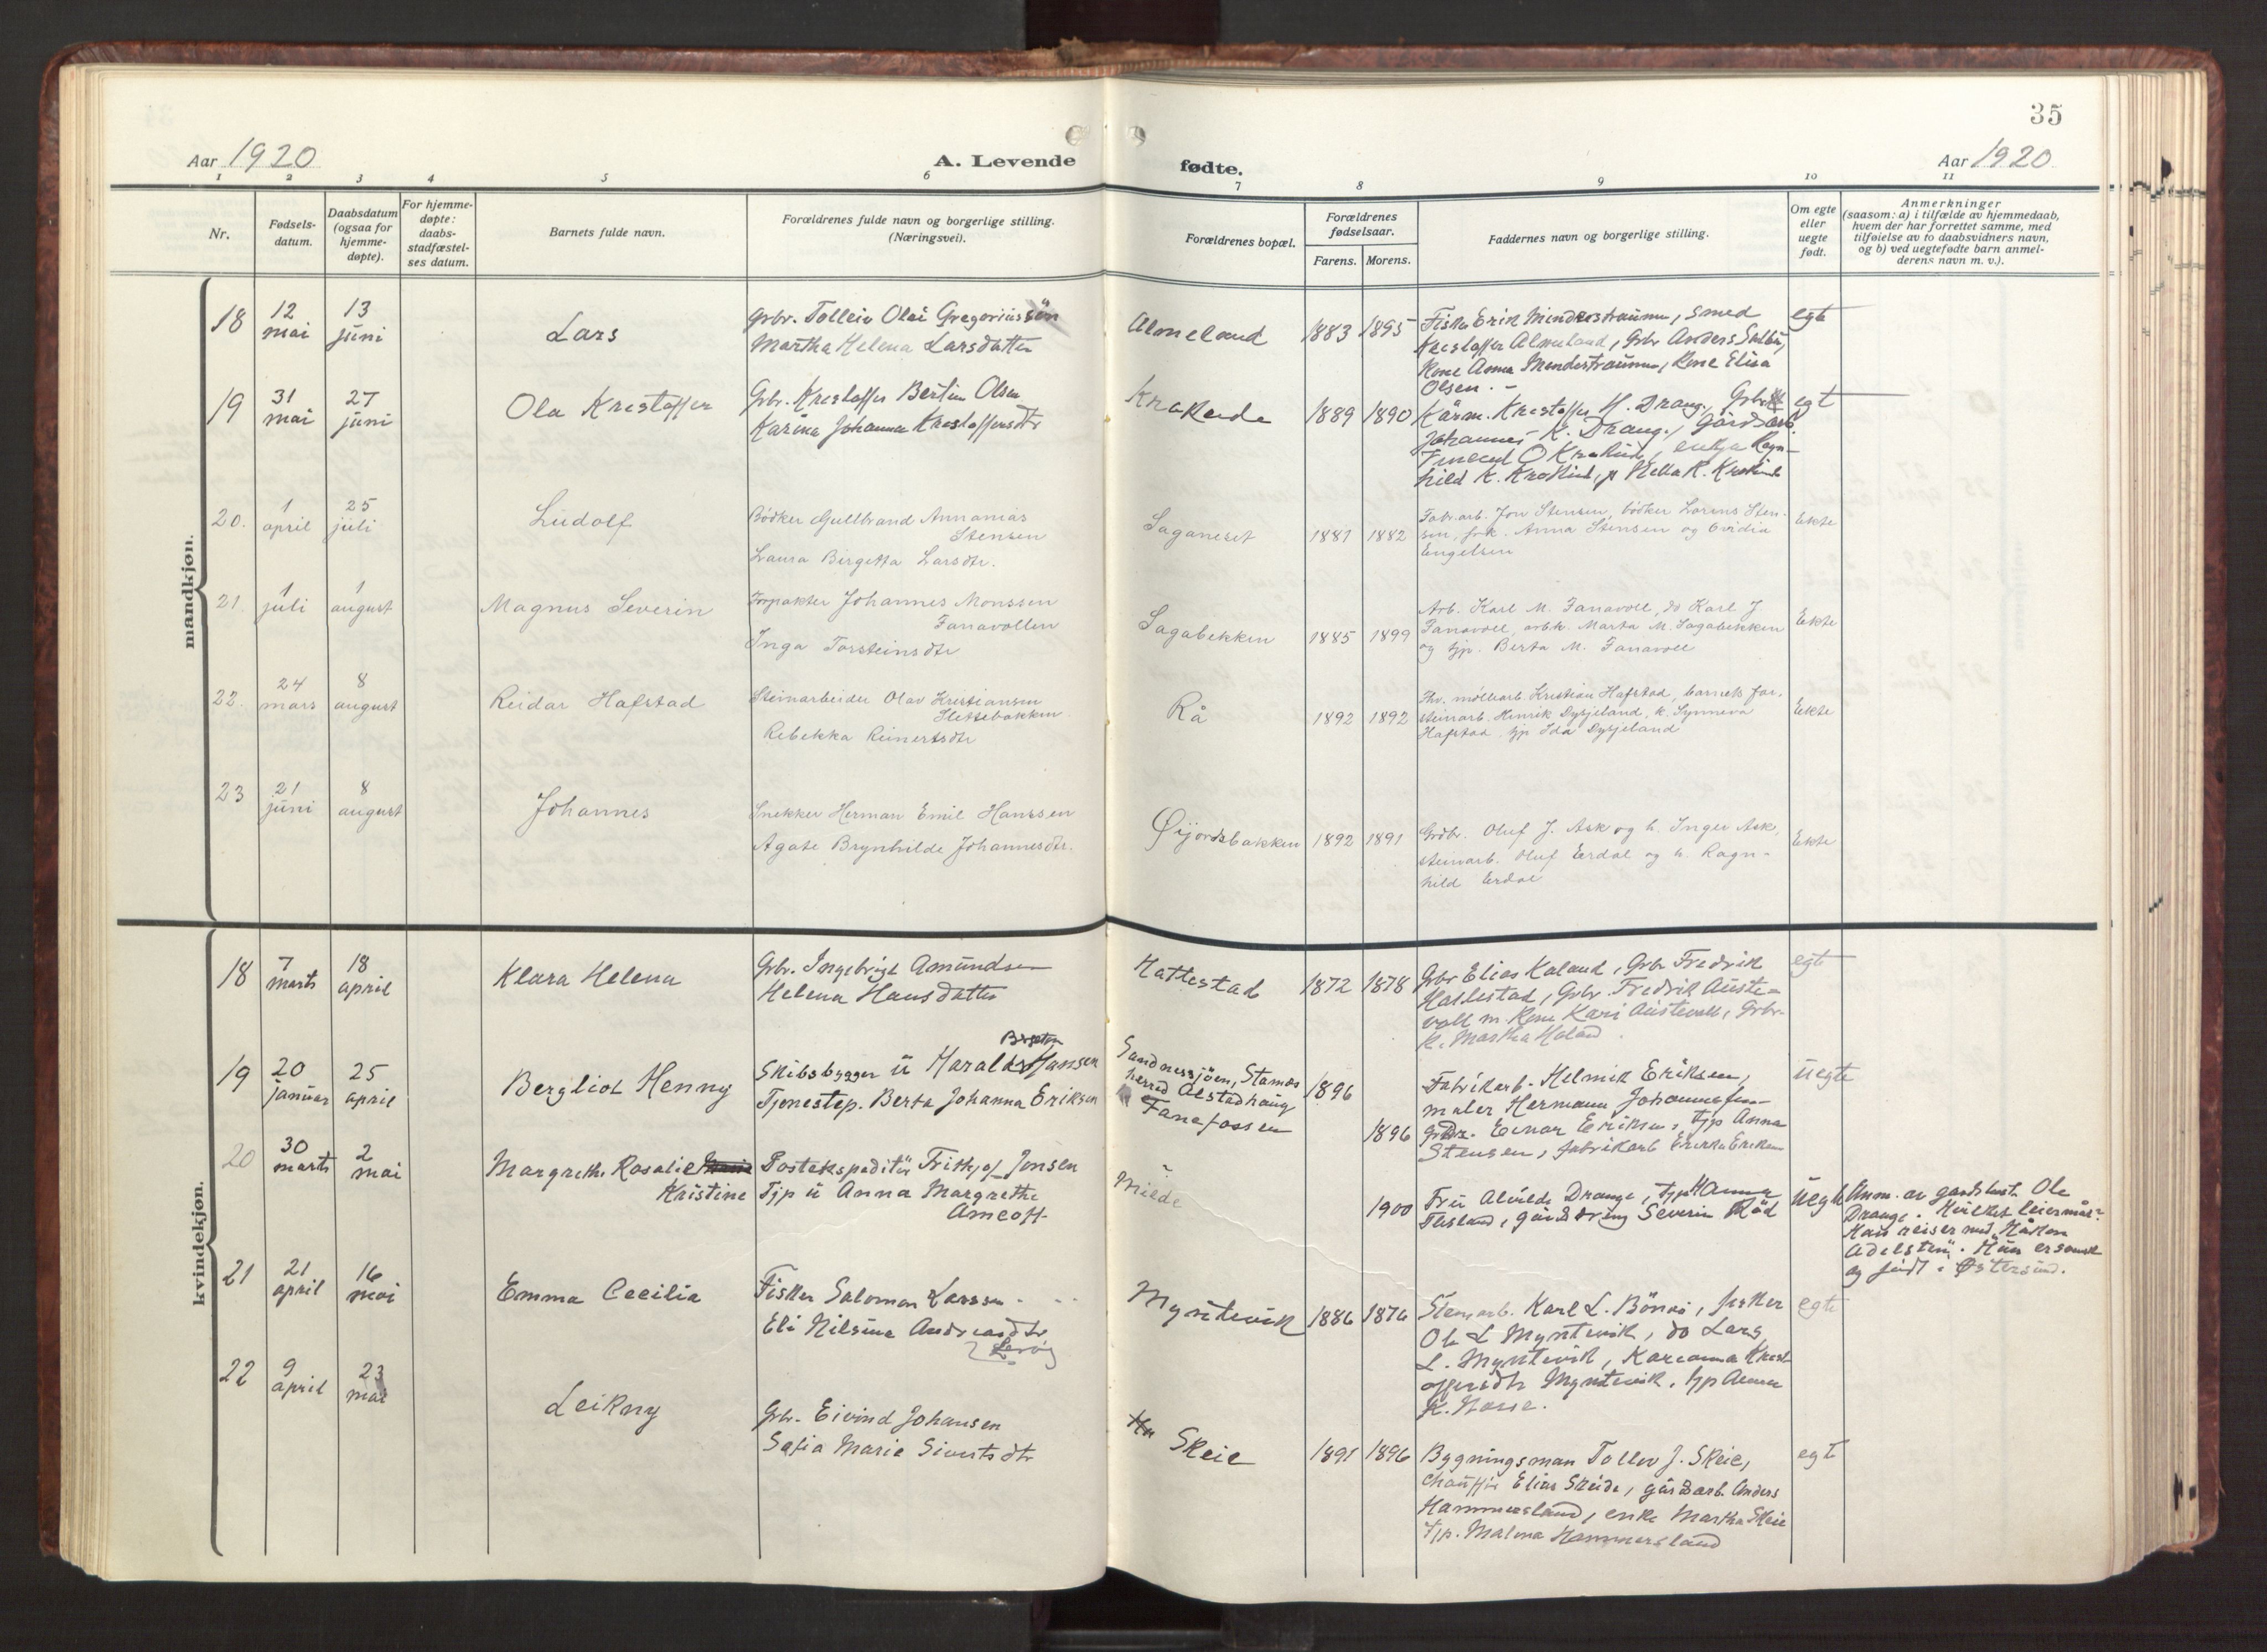 35
Aar 1920
A. Levende
fødte.
Aar 1920
1 2 3 4 5 6 7 8 9 10 11
Nr.
Fødsels-
datum.
Daabsdatum
(ogsaa for
hjemme-
døpte).
For hjemme-
døpte:
daabs-
stadfæstel-
ses datum.
Barnets fulde navn.
Forældrenes fulde navn og borgerlige stilling.
(Næringsvei).
Forældrenes bopæl.
Forældrenes
fødselsaar.
Farens. Morens.
Faddernes navn og borgerlige stilling.
Om egte
eller
uegte
født.
Anmerkninger
(saasom: a) i tilfælde av hjemmedaab,
hvem der har forrettet samme, med
tilføielse av to daabsvidners navn,
og b) ved uegtefødte barn anmel-
derens navn m. v.).
mandkjøn.
18
12
mai
13
juni
Lars
Grbr. Tolleiv Olai Gregoriussön
Martha Helena Larsdatter
Almeland
1883 1895
Fisker Erik Mindestraumn, smed
Kristoffer Almeland, Grbr Anders
Kone Anna Mendestraumn, Kone Elisa
Olsen. -
egte
19
31
mai
27
juni
Ola Kristoffer
Grbr. Kristoffer Bertin Olsen
Karina Johanna Kristoffersdtr
Krakeide
1889 1890
Kristoffer H. Drange, Grbr
Johannes K. Drange, Gårdsarb.
O Krakeide, enkja Ragn-
hild K. Krakeide, p K. Krakeide
egt
20.
1
april
25
juli
Ludolf
Bödker Gullbrand Annanias
Stensen
Laura Birgetta Larsdtr.
Saganeset
1881 1882
Fabr.arb. Jon Stensen, bödker Lorens Sten-
sen, frk. Anna Stensen og Ovidia
Engelsen
Ekte
21.
1
juli
1
august
Magnus Severin
Forpakter Johannes Monssen
Fanavollen
Inga Torsteinsdtr
Sagabekken
1885 1899
Arb. Karl M. Fanavoll, do Karl J.
Fanavoll, arbk. Marta M. Sagabekken
og tjp. Berta M. Fanavoll
Ekte
22.
24
mars
8
august
Reidar Hafstad
Steinarbeider Olav Kristiansen
Slettebakken
Rebekka Reinertsdtr
Rå
1892 1892
Fhv. möllearb. Kristian Hafstad, barnets far,
steinarb. Henrik Dysjeland, k. Synneva
Hafstad, tjp Ida Dysjeland
Ekte
23
21
juni
8
august
Johannes
Snekker Herman Emil Hanssen
Agate Brynhilde Johannesdtr.
Øijordsbakken
1892 1891
Grdbr. Oluf J. Ask og h. Inger Ask,
steinarb. Oluf Erdal og h. Ragn-
hild Erdal
Ekte
kvindekjøn.
18
7
marts
18
april
Klara Helena
Grbr. Ingebrigt Amundsen
Helena Hansdatter
Hattestad
1872 1878
Grbr Elias Kaland, Grbr Fredrik
Hattestad, Grbr. Fredrik Auste-
voll m. Kone Kari Austevoll, Grbr-
k. Martha Haland.
egt
19
20
januar
25
april
Bergliot Henny
Skibsbygger u Harald Hansen
Tjenestep. Berta Johanna Eriksen
Sandnessjöen, Stamnes
herred Alstadhaug
Fanefossen
1896
1896
Fabrikarb. Helmik Eriksen,
maler Hermann Johannessen
Grbr. Einar Eriksen, tjp Anna
Stensen, fabrikarb Eriksen
uegte
20
30
marts
2
mai
Margrethe Rosalie
Kristine
Postekspeditör Frithjof Jensen
Tjp u Anna Margrethe
Milde
1900
Fru Alvilde Drange, tjp Hanna
gårdsdreng Severin Röd
uegte
Anm. av gardsbest. Ole
Drange. Hvilket leiermål?
Han reiser med "Håkon
Adelsten". Hun er svensk
og födt i Østersund.
21
21
april
16
mai
Emma Cecilia
Fisker Salomon Larssen
Eli Nilsine Andreasdtr
Myntevik
1886 1876
Stenarb. Karl L. Bönes, fisker
Ole L Myntevik, do Lars
L. Myntevik, Karianna Krist-
offersdtr Myntevik, tjp Anna
K.
egte
22
9
april
23
mai
Leikny
Grbr. Eivind Johansen
Sofia Marie Sivertsdtr
Skeie
1891 1896
Bygningsman Tollev J. Skeie,
chaufför Elias Skeide, gårdsarb. Anders
Hammersland, enke Martha Skeie
tjp. Malena Hammersland
egt